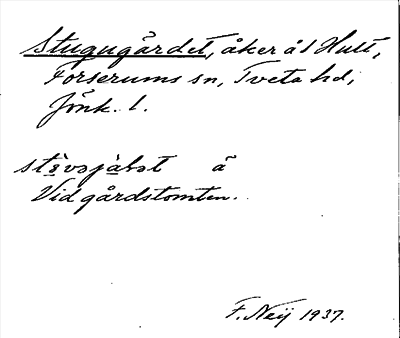 Stugugärdet, åker å s Hult,
Forserums sn, Tveta hd,
Jönk. l.
å
Vid gårdstomten.
F. Neij 1937.